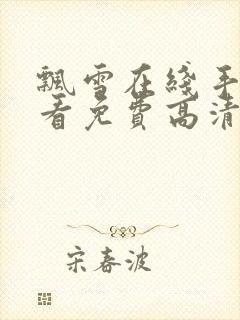 飘雪在线手
看免费高清
宋春波